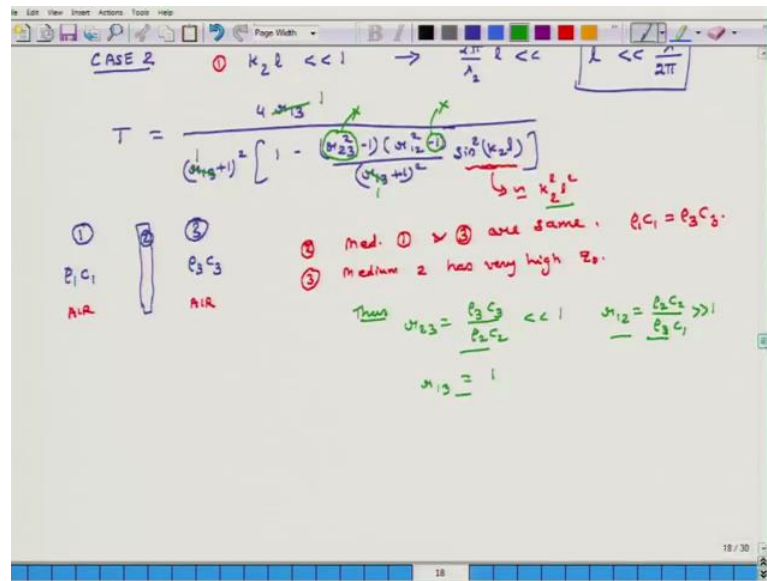 Edit View Insert Actions Tools Help
Page Width
CASE 2 ① k₂l << 1 → 2π/λ₂ l << l << λ/2π
T = 4 r₁₃ 1 / (r₁₃+1)² [ 1 - (r₂₃²-1)(r₁₂²-1) / (r₁₃+1)² sin²(k₂l) ]
1 1 x x
≈ k₂²l²
① ② ③
② Med. ① & ③ are same. ρ₁c₁ = ρ₃c₃.
ρ₁c₁ ρ₃c₃
③ Medium 2 has very high z₀.
AIR AIR
Thus r₂₃ = ρ₃c₃/ρ₂c₂ << 1 r₁₂ = ρ₂c₂/ρ₃c₁ >> 1
r₁₃ = 1
18 / 30
18